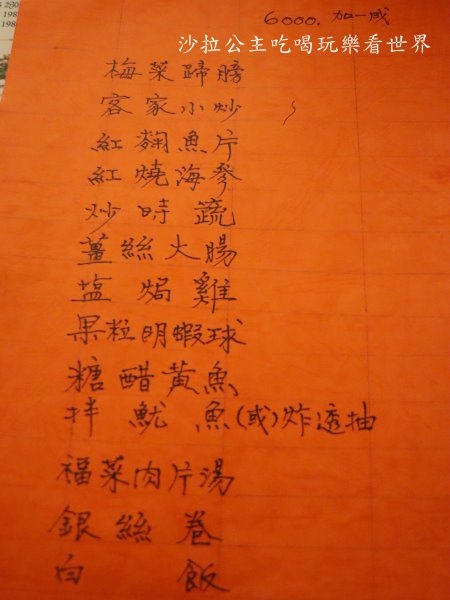 6000.加一成
沙拉公主吃喝玩樂看世界
梅菜蹄膀
客家小炒
紅麴魚片
紅燒海參
炒時蔬
薑絲大腸
塩焗雞
果粒明蝦球
糖醋黃魚
拌魷魚(或)炸透抽
福菜肉片湯
銀絲卷
白飯